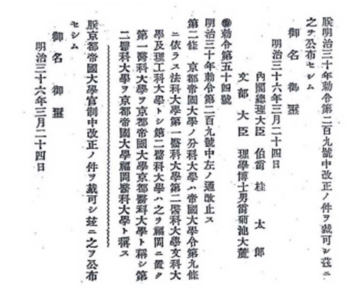 朕明治三十年勅令第二百九號中改正ノ件ヲ裁可シ茲ニ
之ヲ公布セシム
御名 御璽
明治三十六年三月二十四日
內閣總理大臣 伯爵 桂太郎
文部大臣 理學博士男爵菊池大麓
勅令第五十四號
明治三十年勅令第二百九號中左ノ通改正ス
第二條 京都帝國大學ノ分科大學ハ帝國大學令第九條
ニ依ラス法科大學第一醫科大學第二醫科大學文科大
學及理工科大學トシ第二醫科大學ハ之ヲ福岡ニ置ク
第一醫科大學ヲ京都帝國大學京都醫科大學ト稱シ第
二醫科大學ヲ京都帝國大學福岡醫科大學ト稱ス
朕京都帝國大學官制中改正ノ件ヲ裁可シ茲ニ之ヲ公布
セシム
御名 御璽
明治三十六年三月二十四日